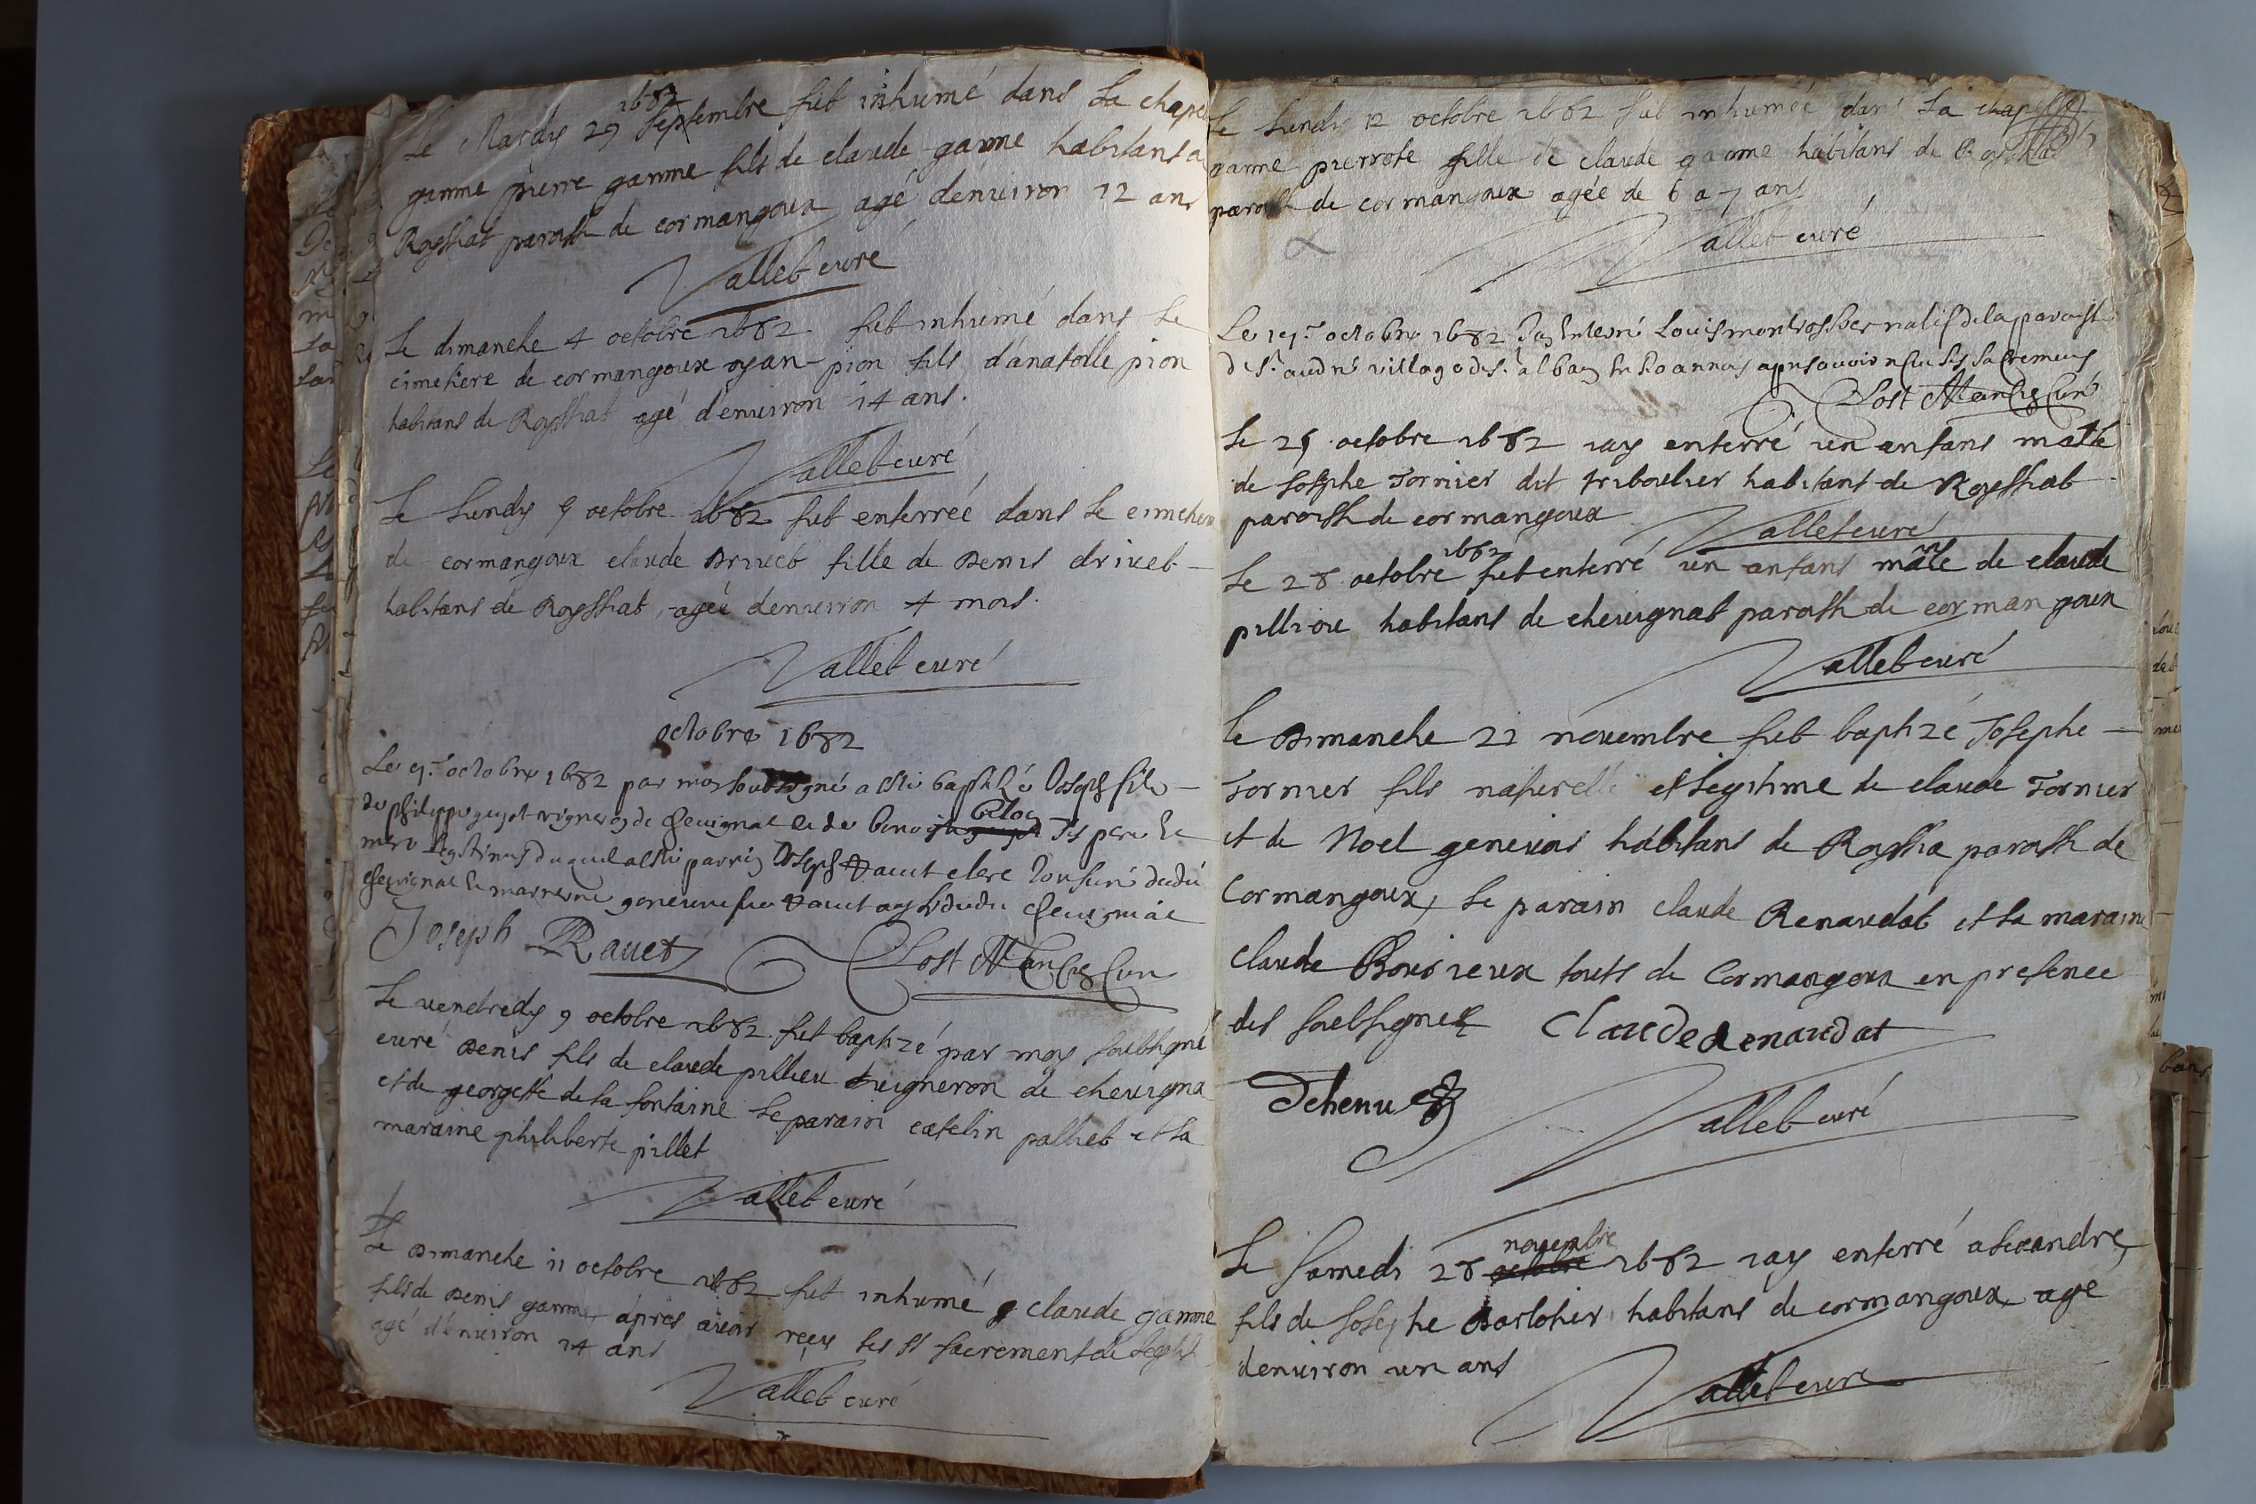 Le Mardy 29 septembre 1682 fut inhumé dans la chapel
gamme pierre gamme fils de claude gamme habitant a
Roysshat paroisse de cormangoux agé denuiron 12 ans
Vallet curé
Le dimanche 4 octobre 1682 fut inhumé dans le
cimetiere de cormangoux pion fils d'anatolle pion
habitans de Roysshat agé denuiron 14 ans.
Vallet curé
Le lundy 5 octobre 1682 fut enterreé dans le cimetier
de cormangoux claude drivet fille de denis drivet
habitans de Roysshat, ageé denuiron 4 mois.
Vallet curé
octobre 1682
Le octobre 1682 par moy soubsigné a esté baptizé Joseph fils
de philippe guyot vigneron de cheuignat et de pere et
mere legitimes duquel a esté parrin Joseph clerc dudit
cheuignat et marreine dudit cheuignat
Joseph Rauet
Le vendredy 9 octobre 1682 fut baptizé par moy soubsigné
curé denis fils de claude pillieu vigneron de cheuigna
et de georgette de la fontaine le parain catelin palliet et la
maraine philiberte pillet
Vallet curé
Le dimanche 11 octobre 1682 fut inhumé claude gamme
fils de denis gamme apres auoir reçu les sts sacrement de
agé denuiron 14 ans
Vallet curé
Le lundy 12 octobre 1682 fut inhumeé dans la chapelle
gamme pierrote fille de claude gamme habitans de
paroisse de cormangoux ageé de 6 a 7 ans
Vallet curé
Le octobre 1682 Jay enterré Louis natif de la paroisse
de St village de St apres auoir receu ses sacremens
curé
Le 25 octobre 1682 jay enterré un anfans male
de Josephe Tornier dit triboulier habitant de Roysshat
paroisse de cormangoux
Vallet curé
Le 28 octobre 1682 fut enterré un anfans mâle de claude
pilliou habitans de cheuignat paroisse de cormangoux
Vallet curé
Le dimanche 22 novembre fut baptizé Josephe
Tornier fils naturelle et legitime de claude Tornier
et de Noel geneuois habitans de Royssia paroisse de
Cormangoux, le parain claude Renaudat et la maraine
claude Bouvieux touts de Cormangoux en presence
des soubsignez Claude Renaudat
Dehenu
Vallet curé
Le samedi 28 octobre novembre 1682 jay enterré alexandre
fils de Josephe habitans de cormangoux, age
denuiron un ans
Vallet curé